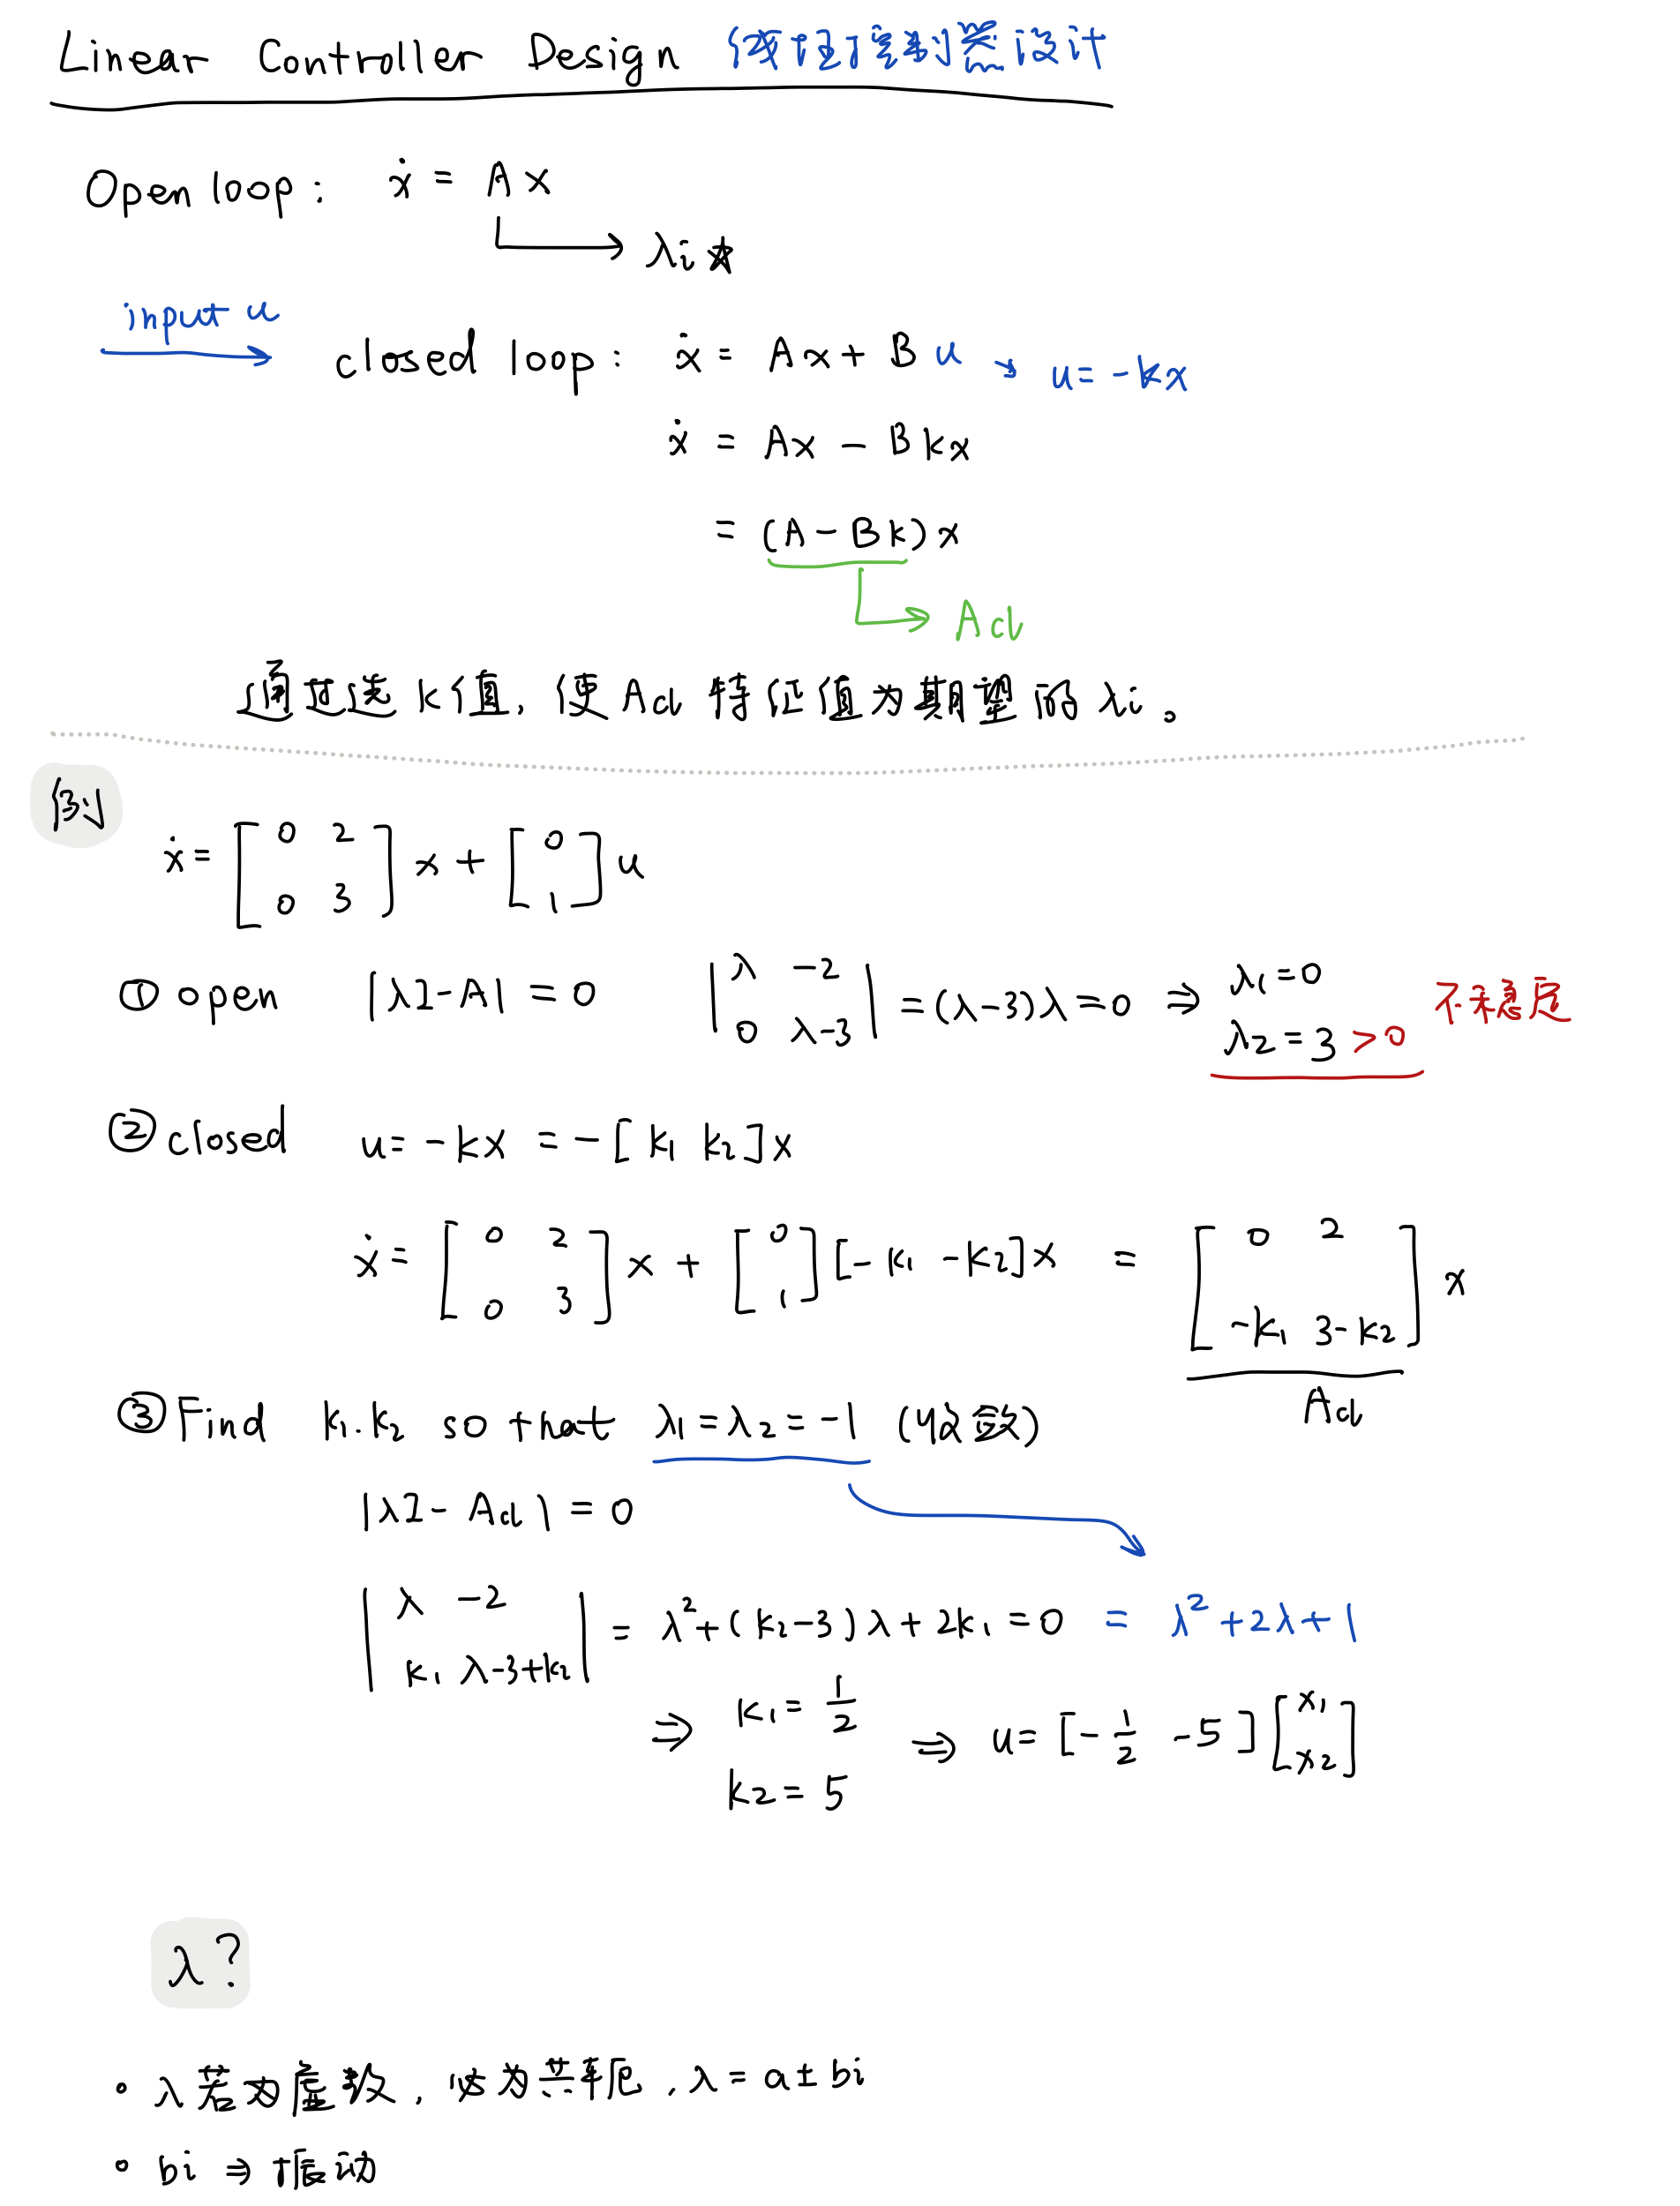 Linear Controller Design 线性控制器设计
Open loop: ẋ = Ax
λi ☆
input u
closed loop: ẋ = Ax + Bu → u = -kx
ẋ = Ax - Bkx
= (A - Bk)x
Acl
通过选k值, 使Acl特征值为期望的λi。
例
ẋ = [0 2; 0 3] x + [0; 1] u
① open |λI-A| = 0 |λ -2; 0 λ-3| = (λ-3)λ = 0 ⇒ λ1 = 0 λ2 = 3 >0 不稳定
② closed u = -kx = -[k1 k2]x
ẋ = [0 2; 0 3] x + [0; 1] [-k1 -k2]x = [0 2; -k1 3-k2] x
Acl
③ Find k1.k2 so that λ1 = λ2 = -1 (收敛)
|λI - Acl| = 0
|λ -2; k1 λ-3+k2| = λ² + (k2-3)λ + 2k1 = 0 = λ² + 2λ + 1
⇒ k1 = 1/2 k2 = 5 ⇒ u = [-1/2 -5] [x1; x2]
λ?
• λ若为虚数, 必为共轭, λ = a ± bi
• bi ⇒ 振动